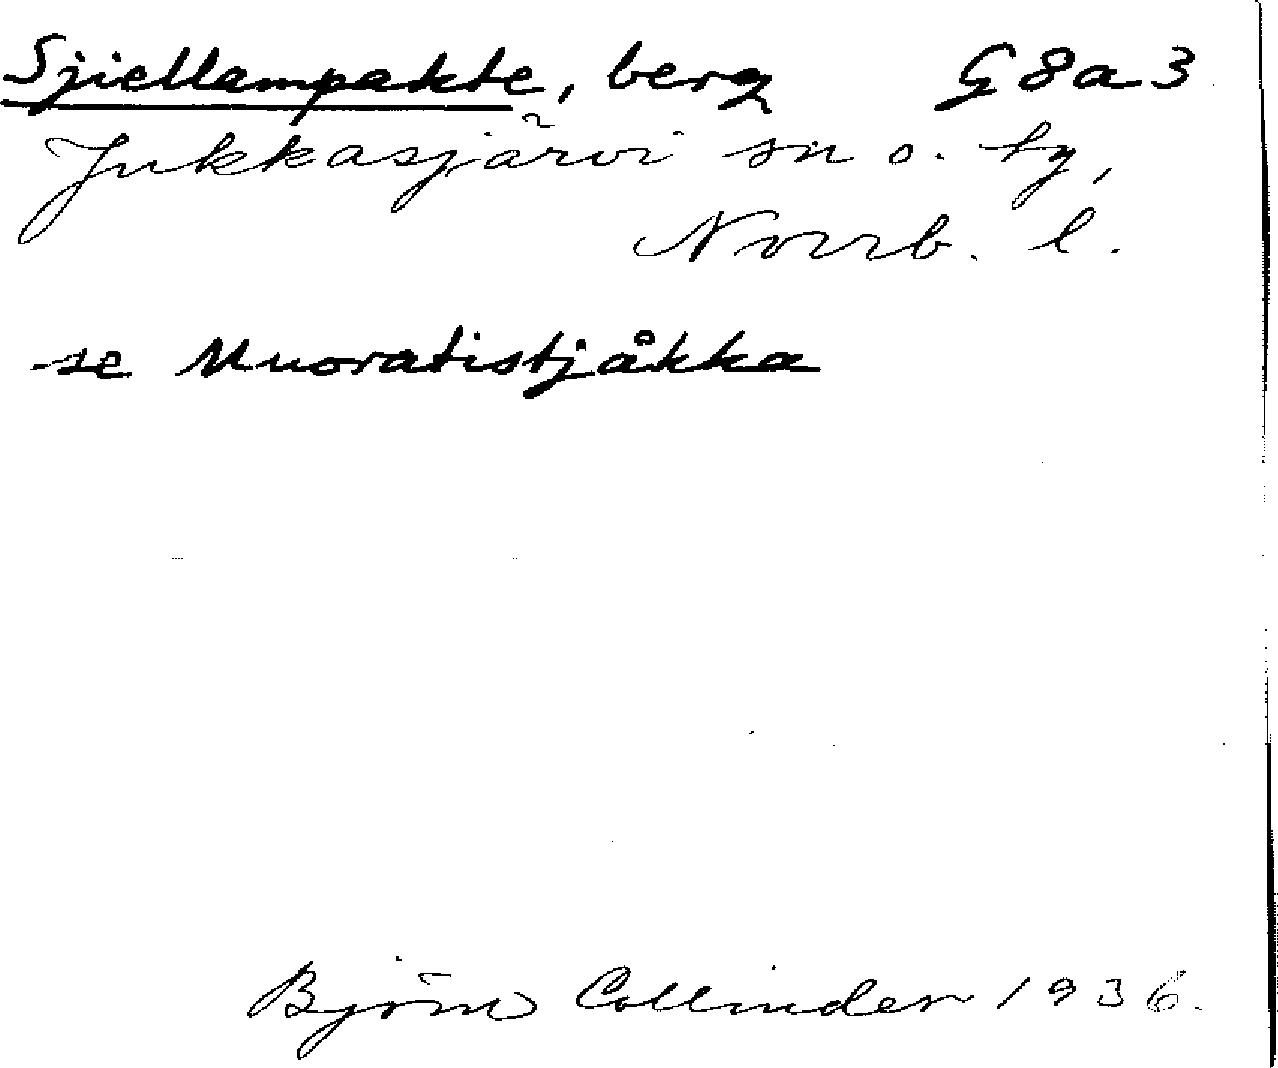 Sjiellampakte, berg G8a3
Jukkasjärvi sn o. tg,
Norrb. l.
se Muoratistjåkka
Björn Collinder 1936.